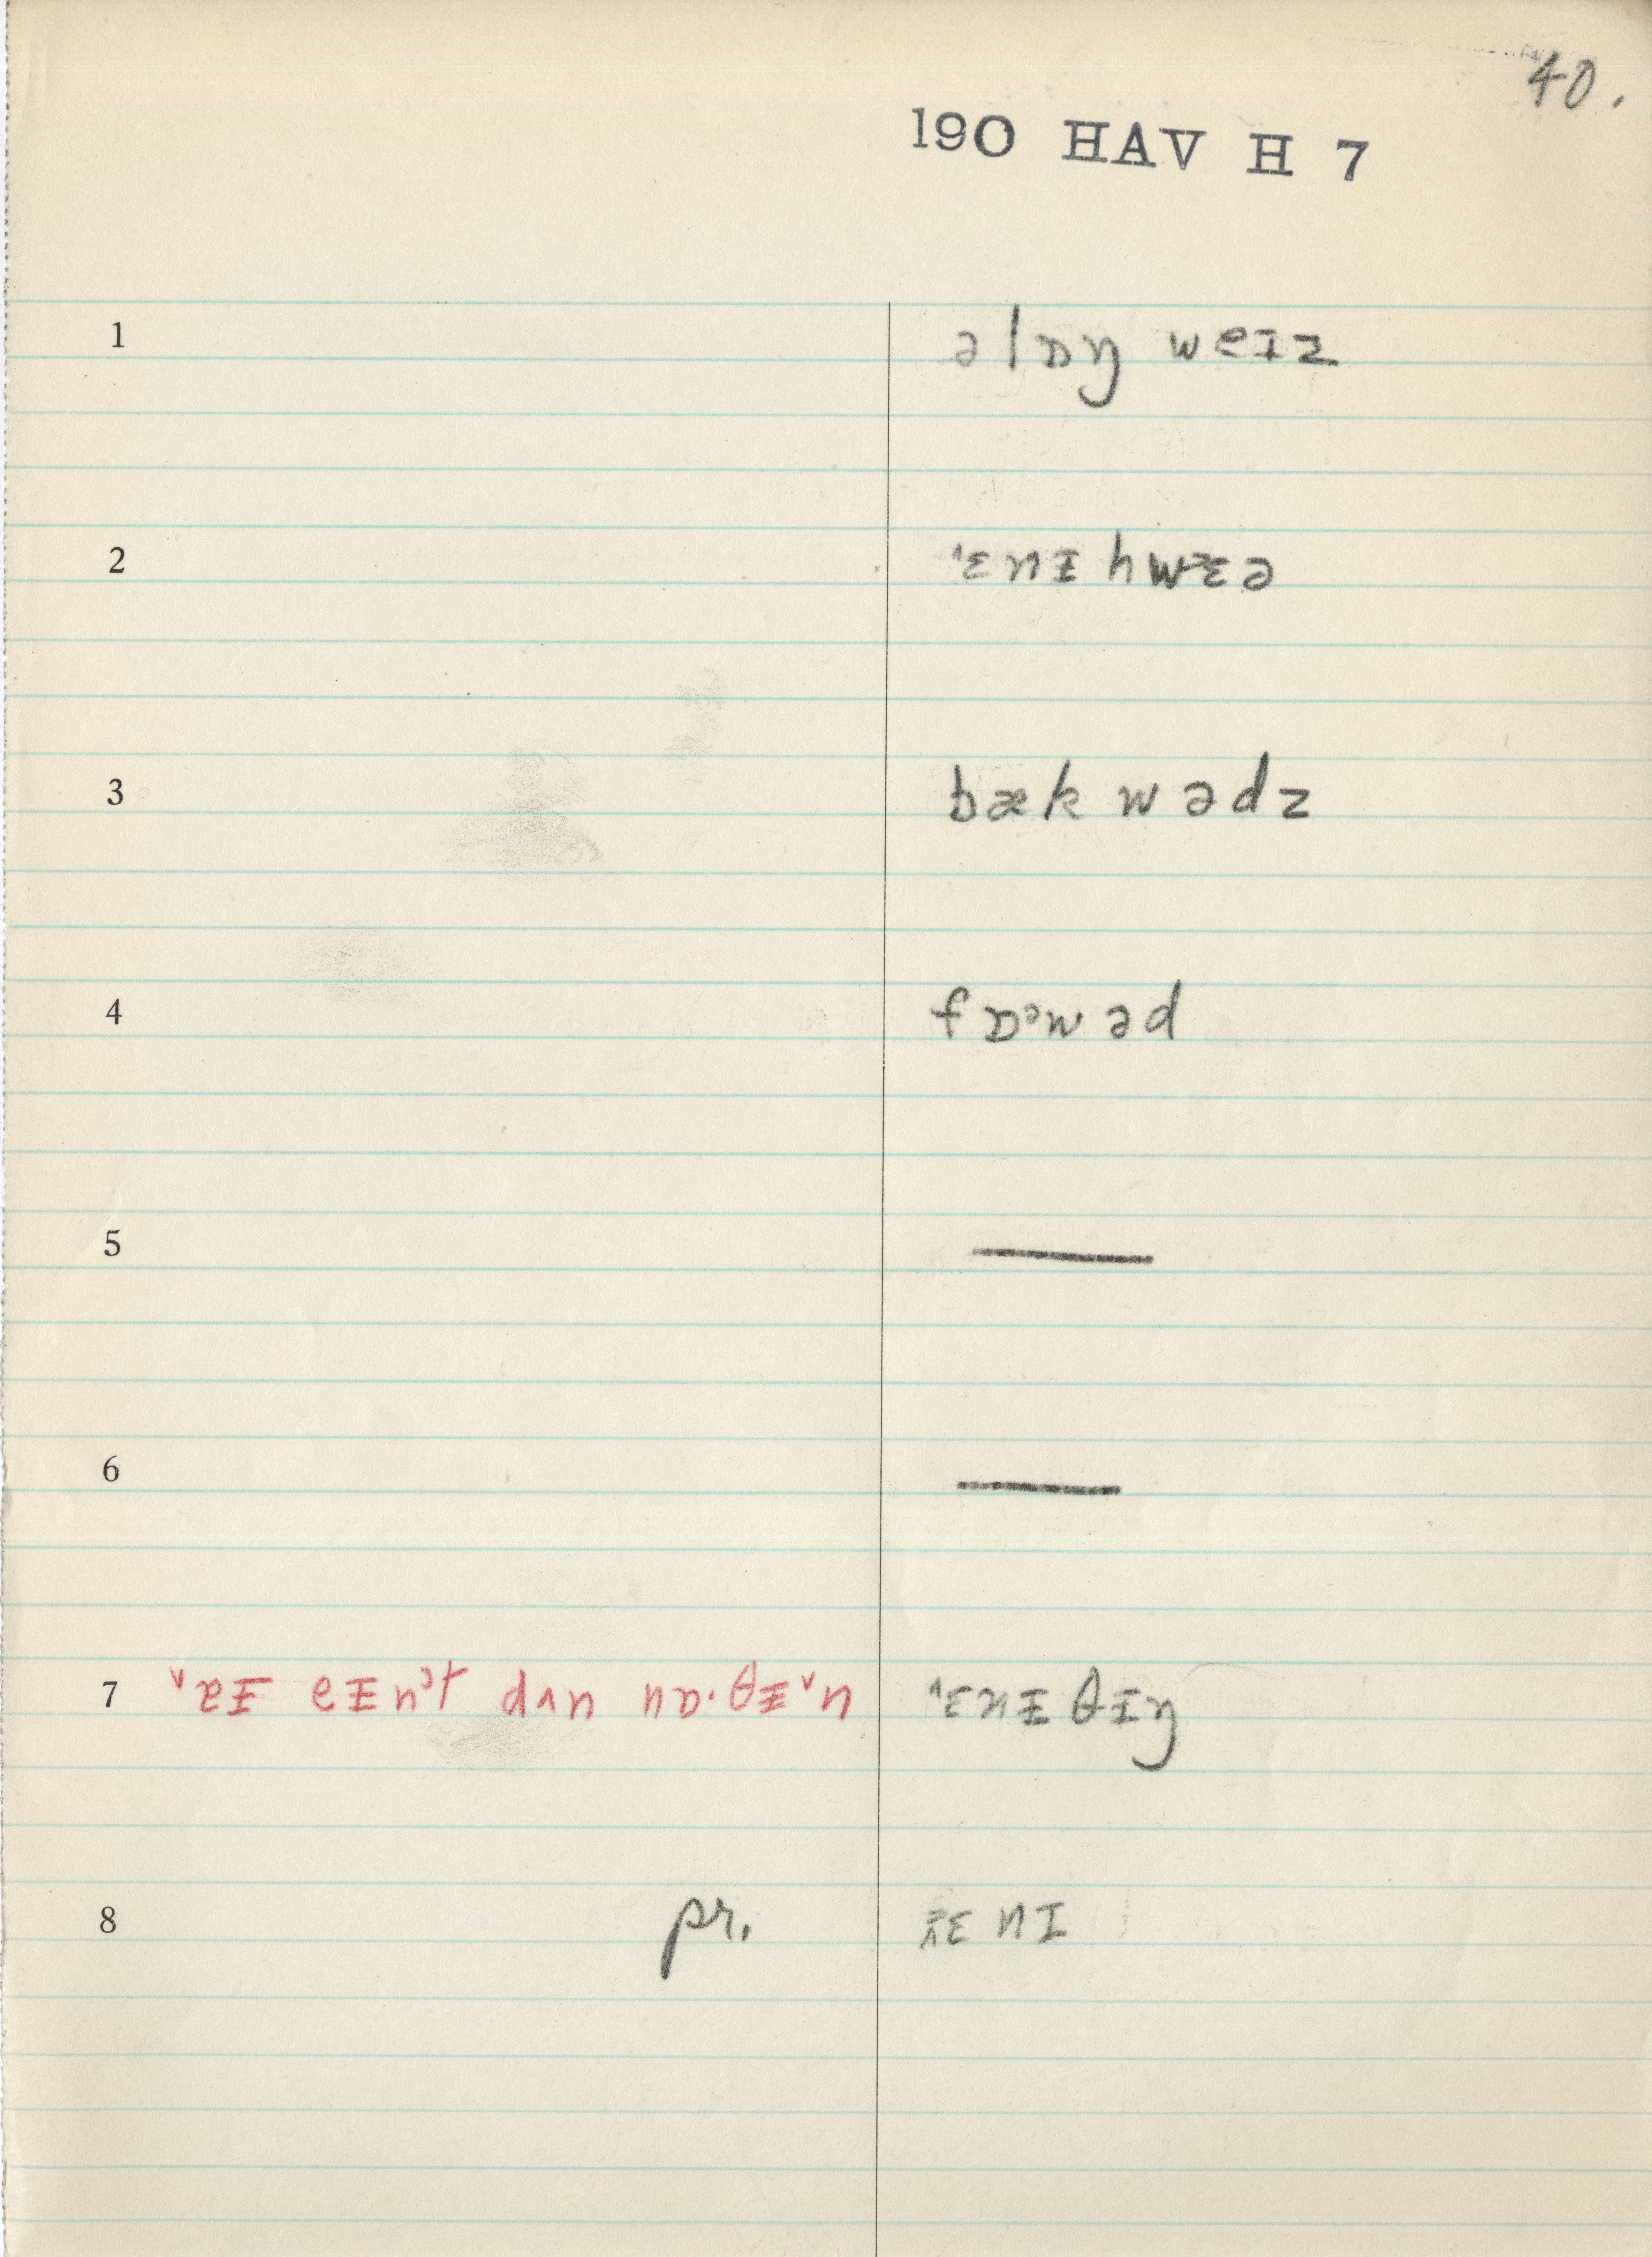 40.
190 HAV H 7
1 əlɒŋ weɪz
2 ˈɛnɪ hwɛə
3 bæk wədz
4 fɒᵊwəd
5 —
6 —
7 ˅ɐɪ eɪnᵊt dʌn nɒ·θɪ˅n ˄ɛnɪ θɪŋ
8 pr. ɛnɪ